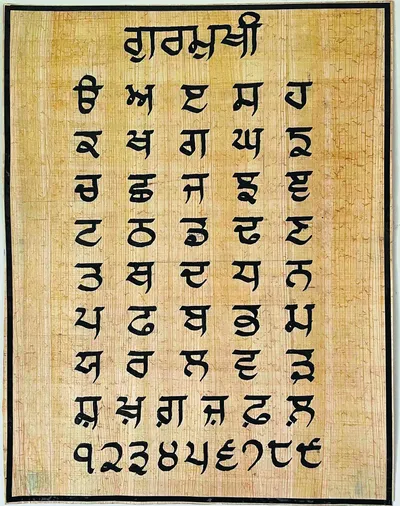 ਗੁਰਮੁਖੀ
ੳ ਅ ੲ ਸ ਹ
ਕ ਖ ਗ ਘ ਙ
ਚ ਛ ਜ ਝ ਞ
ਟ ਠ ਡ ਢ ਣ
ਤ ਥ ਦ ਧ ਨ
ਪ ਫ ਬ ਭ ਮ
ਯ ਰ ਲ ਵ ੜ
ਸ਼ ਖ਼ ਗ਼ ਜ਼ ਫ਼ ਲ਼
੧੨੩੪੫੬੭੮੯